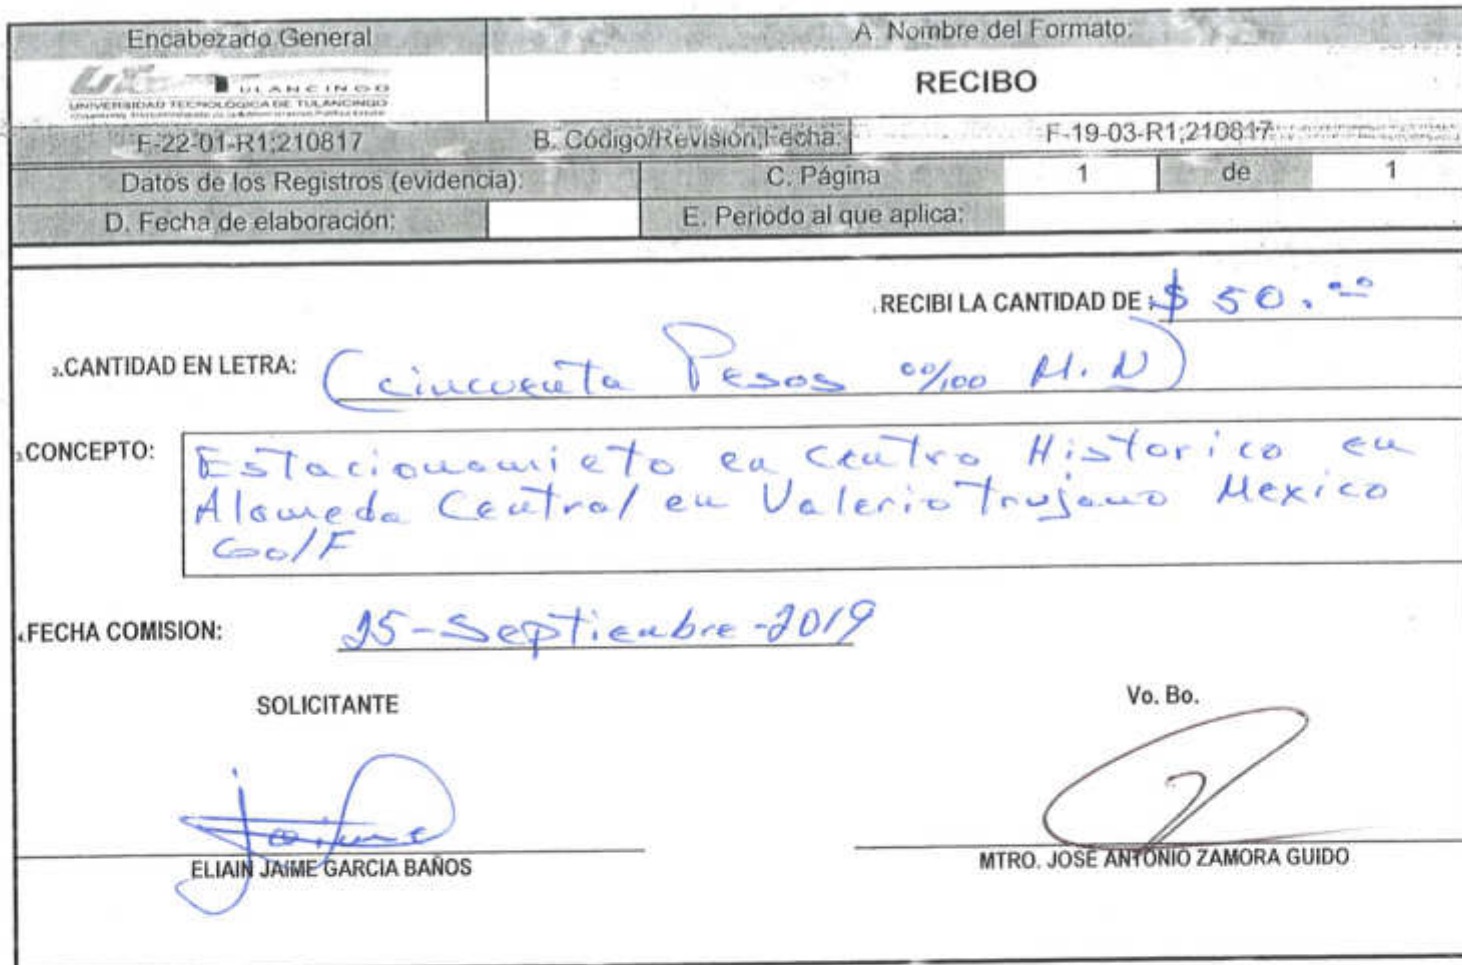 Encabezado General A Nombre del Formato:
TULANCINGO RECIBO
UNIVERSIDAD TECNOLÓGICA DE TULANCINGO
F-22-01-R1;210817 B. Código/Revisión;Fecha: F-19-03-R1;210817
Datos de los Registros (evidencia): C. Página 1 de 1
D. Fecha de elaboración: E. Periodo al que aplica:
1.RECIBI LA CANTIDAD DE : $ 50.00
2.CANTIDAD EN LETRA: (cincuenta Pesos 00/100 M.N)
3.CONCEPTO: Estacionamieto en Centro Historico en
Alameda Central en Valerio Trujano Mexico
4.FECHA COMISION: 25-Septiembre-2019
SOLICITANTE Vo. Bo.
Jaime
ELIAIN JAIME GARCIA BAÑOS MTRO. JOSE ANTONIO ZAMORA GUIDO